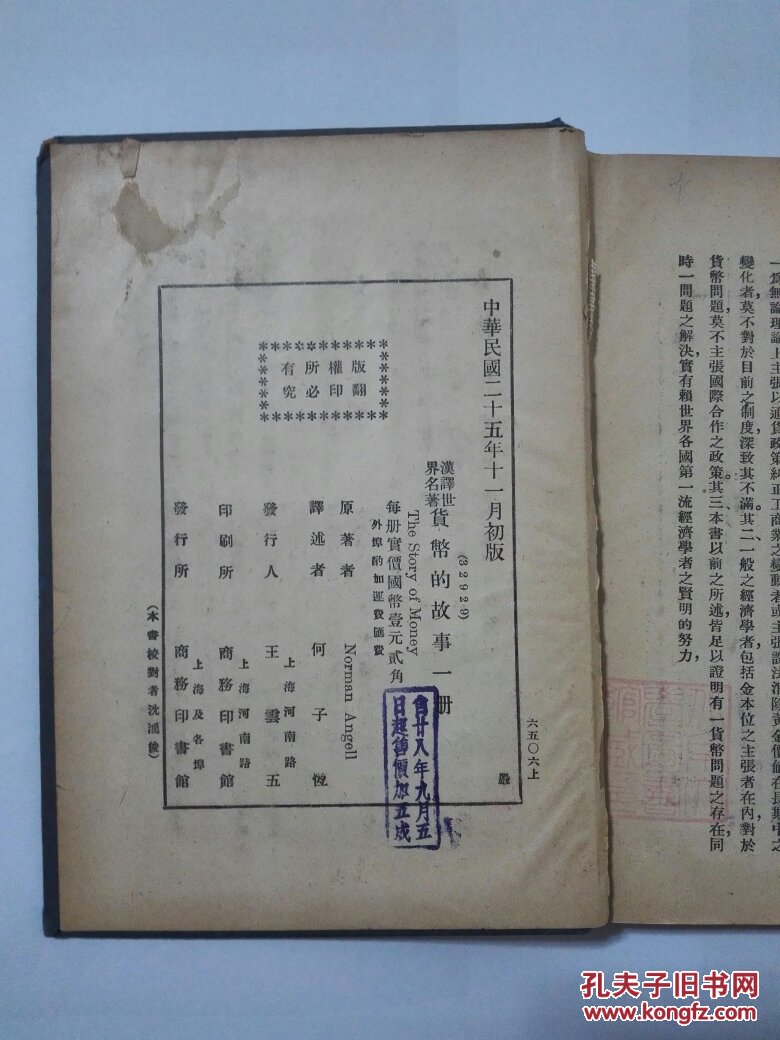 一爲無論理論上主張以通貨政策糾正工商業之變動者或主張設法消除黃金價值在長期中之
變化者莫不對於目前之制度，深致其不滿。其二一般之經濟學者包括金本位之主張者在內，對於
貨幣問題，莫不主張國際合作之政策。其三、本書以前之所述，皆足以證明有一貨幣問題之存在。同
時一問題之解決，實有賴世界各國第一流經濟學者之賢明的努力，
六五〇六上
中華民國二十五年十一月初版
版權所有
翻印必究
漢譯世界名著
貨幣的故事 一册
(32929)
The Story of Money
每册實價國幣壹元貳角
外埠酌加運費匯費
原著者 Norman Angell
譯述者 何子恆
發行人 王雲五
上海河南路
印刷所 商務印書館
上海河南路
發行所 商務印書館
上海及各埠
(本書校對者沈鴻俊)
廿八年九月五
日起售價加五成
孔夫子旧书网
www.kongfz.com